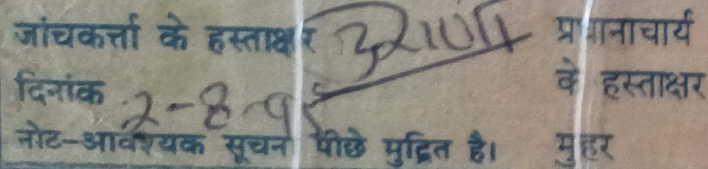 जांचकर्त्ता के हस्ताक्षर प्रधानाचार्य
दिनांक 2-8-95 के हस्ताक्षर
नोट-आवश्यक सूचना पीछे मुद्रित है। मुहर